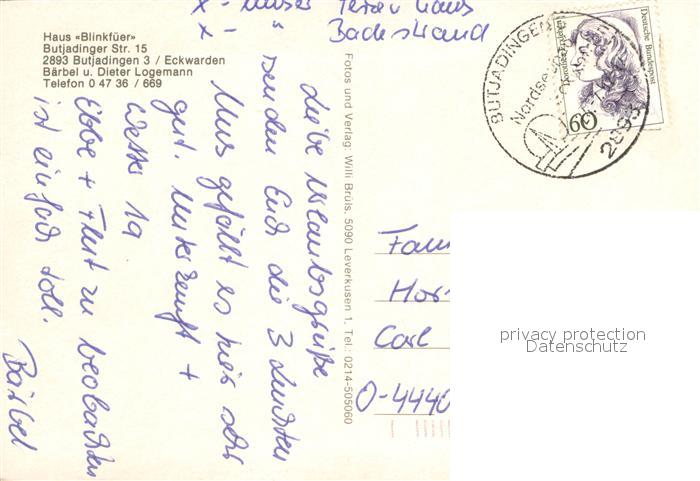 x - unser Ferienhaus
x - Badestrand
Haus «Blinkfüer»
Butjadinger Str. 15
2893 Butjadingen 3 / Eckwarden
Bärbel u. Dieter Logemann
Telefon 0 47 36 / 669
Liebe Urlaubsgrüße
senden Euch die 3
Uns gefällt es hier sehr
gut. Unterkunft +
Wetter 1a
Ebbe + Flut zu beobachten
ist einfach toll.
Bärbel
Fotos und Verlag: Willi Brüls, 5090 Leverkusen 1, Tel. 0214-505060
BUTJADINGEN
Nordsee
2893
Deutsche Bundespost
60
Fam
Hor
Carl
O-4440
privacy protection
Datenschutz